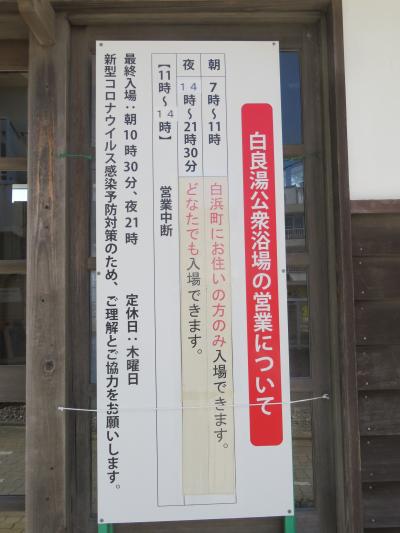 白良湯公衆浴場の営業について
朝 7時～11時 白浜町にお住いの方のみ入場できます。
夜 14時～21時30分 どなたでも入場できます。
【11時～14時】 営業中断
最終入場：朝10時30分、夜21時 定休日：木曜日
新型コロナウイルス感染予防対策のため、ご理解とご協力をお願いします。